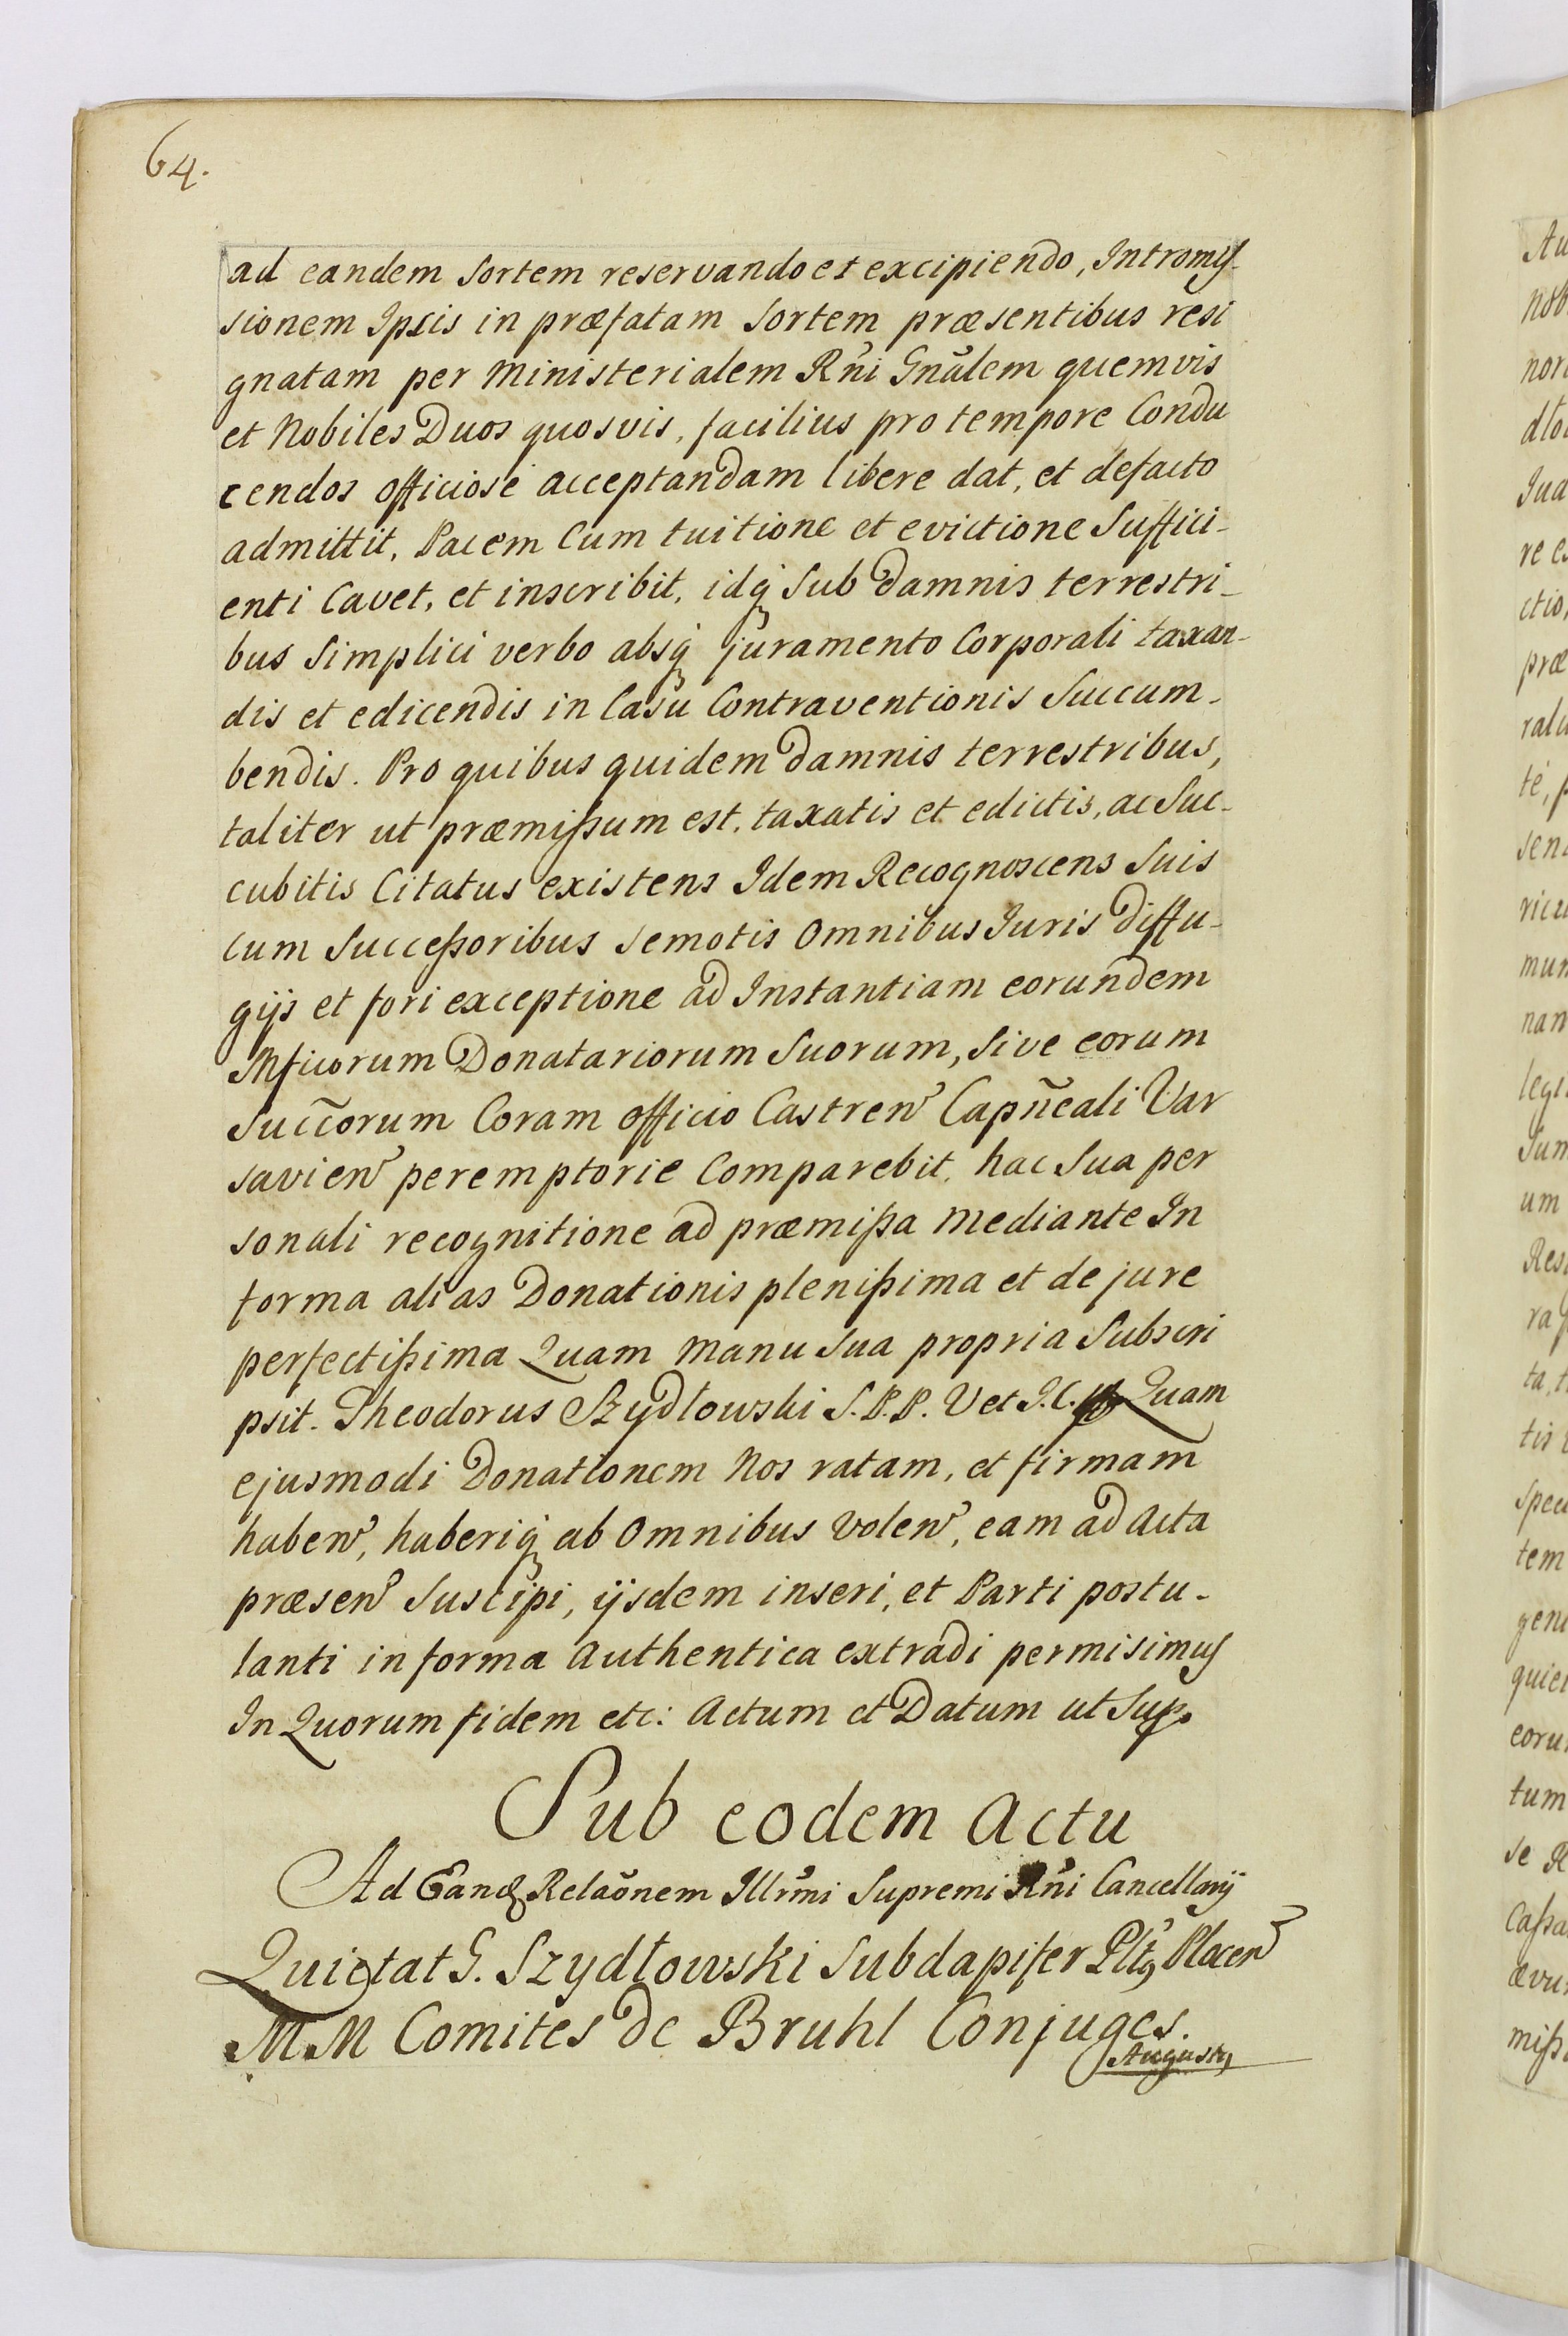 64.
ad eandem sortem reservando et excipiendo, Intromis-
sionem Ipsis in præfatam sortem præsentibus resi
gnatam per Ministerialem Rñi Gnãlem quemvis
et Nobiles Duos quosvis, facilius pro tempore Condu
cendos officiosé acceptandam libere dat, et defacto
admittit, Pacem Cum tuitione et evictione Suffici-
enti Cavet, et inscribit, idq Sub Damnis terrestri-
bus Simplici verbo absq juramento Corporali taxan-
dis et edicendis in Casu Contraventionis Succum-
bendis. Pro quibus quidem Damnis terrestribus,
taliter ut præmissum est, taxatis et edictis, ac Suc-
cubitis Citatus existens Idem Recognoscens Suis
cum Successoribus semotis Omnibus Juris Diffu-
gijs et fori exceptione ad Instantiam eorundem
Mficorum Donatariorum Suorum, Sive eorum
Succorum Coram officio Castren Capñeali Var
savien peremptorie Comparebit, hac Sua per
sonali recognitione ad præmissa mediante In
forma alias Donationis plenissima et de jure
perfectissima Quam manu sua propria Subscri
psit. Theodorus Szydłowski S.P.P. V et J.C. Quam
ejusmodi Donationem Nos ratam, et firmam
haben, haberiq ab Omnibus volen, eam ad Acta
præsen Suscipi, ijsdem inseri, et Parti postu-
lanti in forma Authentica extradi permisimus
In Quorum fidem etc: Actum et Datum ut Sup.
Sub eodem Actu
Ad Eand Relaõnem Illrmi Supremi Rñi Cancellarij
Quietat G. Szydłowski Subdapifer Pltg Placen
M.M Comites de Bruhl Conjuges.
Augusty